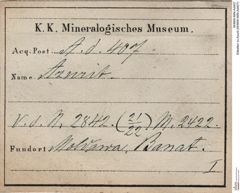 K. K. Mineralogisches Museum.
Acq. Post. A. d. 407
Name Azurit.
V. d. N. 2842. (21/22) M. 2422.
Fundort Moldawa, Banat.
I